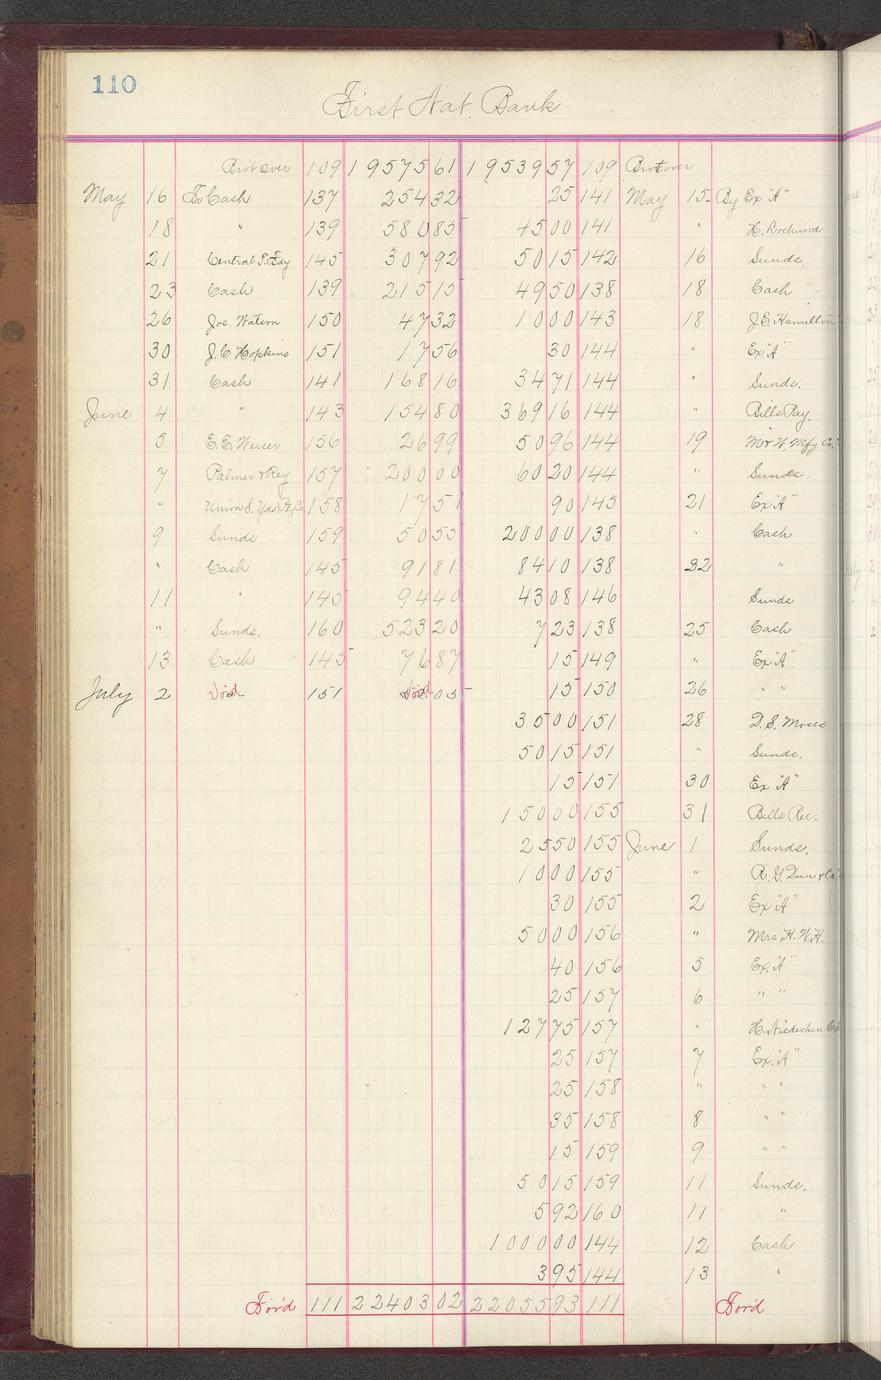 110
First Nat. Bank
Brot over 109 19575 61 19539 57 109 Brot over
May 16 To Cash 137 254 32 25 141 May 15 By Ex "A"
18 " 139 580 85 45 00 141 " H. Rockwood
21 Central T. Fdy 145 307 92 50 15 142 16 Sunds.
23 Cash 139 215 15 49 50 138 18 Cash
26 Joe. Watson 150 47 32 10 00 143 18 J.E. Hamilton
30 J.C. Hopkins 151 17 56 30 144 " Ex "A"
31 Cash 141 168 16 34 71 144 " Sunds.
June 4 " 143 154 80 369 16 144 " Bills Pay.
5 E.E. Weiser 156 26 99 50 96 144 19 M & W. Mfg. Co.
7 Palmer & Rey 157 200 00 60 20 144 " Sunds.
" Union S. 158 17 51 90 145 21 Ex "A"
9 Sunds 159 50 55 200 00 138 " Cash
" Cash 145 91 81 84 10 138 22 "
11 " 145 94 40 43 08 146 Sunds
" Sunds. 160 523 20 7 23 138 25 Cash
13 Cash 145 76 87 15 149 " Ex "A"
July 2 Void 151 Void 05 15 150 26 " "
35 00 151 28 D.S. Moses
50 15 151 " Sunds.
15 151 30 Ex "A"
150 00 155 31 Bills Rec.
25 50 155 June 1 Sunds.
10 00 155 " R.G. Dun & Co.
30 155 2 Ex "A"
50 00 156 " Mrs. H. W. H.
40 156 5 Ex. "A"
25 157 6 " "
127 75 157 " H. Niedecken Co
25 157 7 Ex. "A"
25 158 " " "
35 158 8 " "
15 159 9 " "
50 15 159 11 Sunds.
5 92 160 11 "
1000 00 144 12 Cash
3 95 144 13 "
For'd 111 22403 02 22055 93 111 For'd